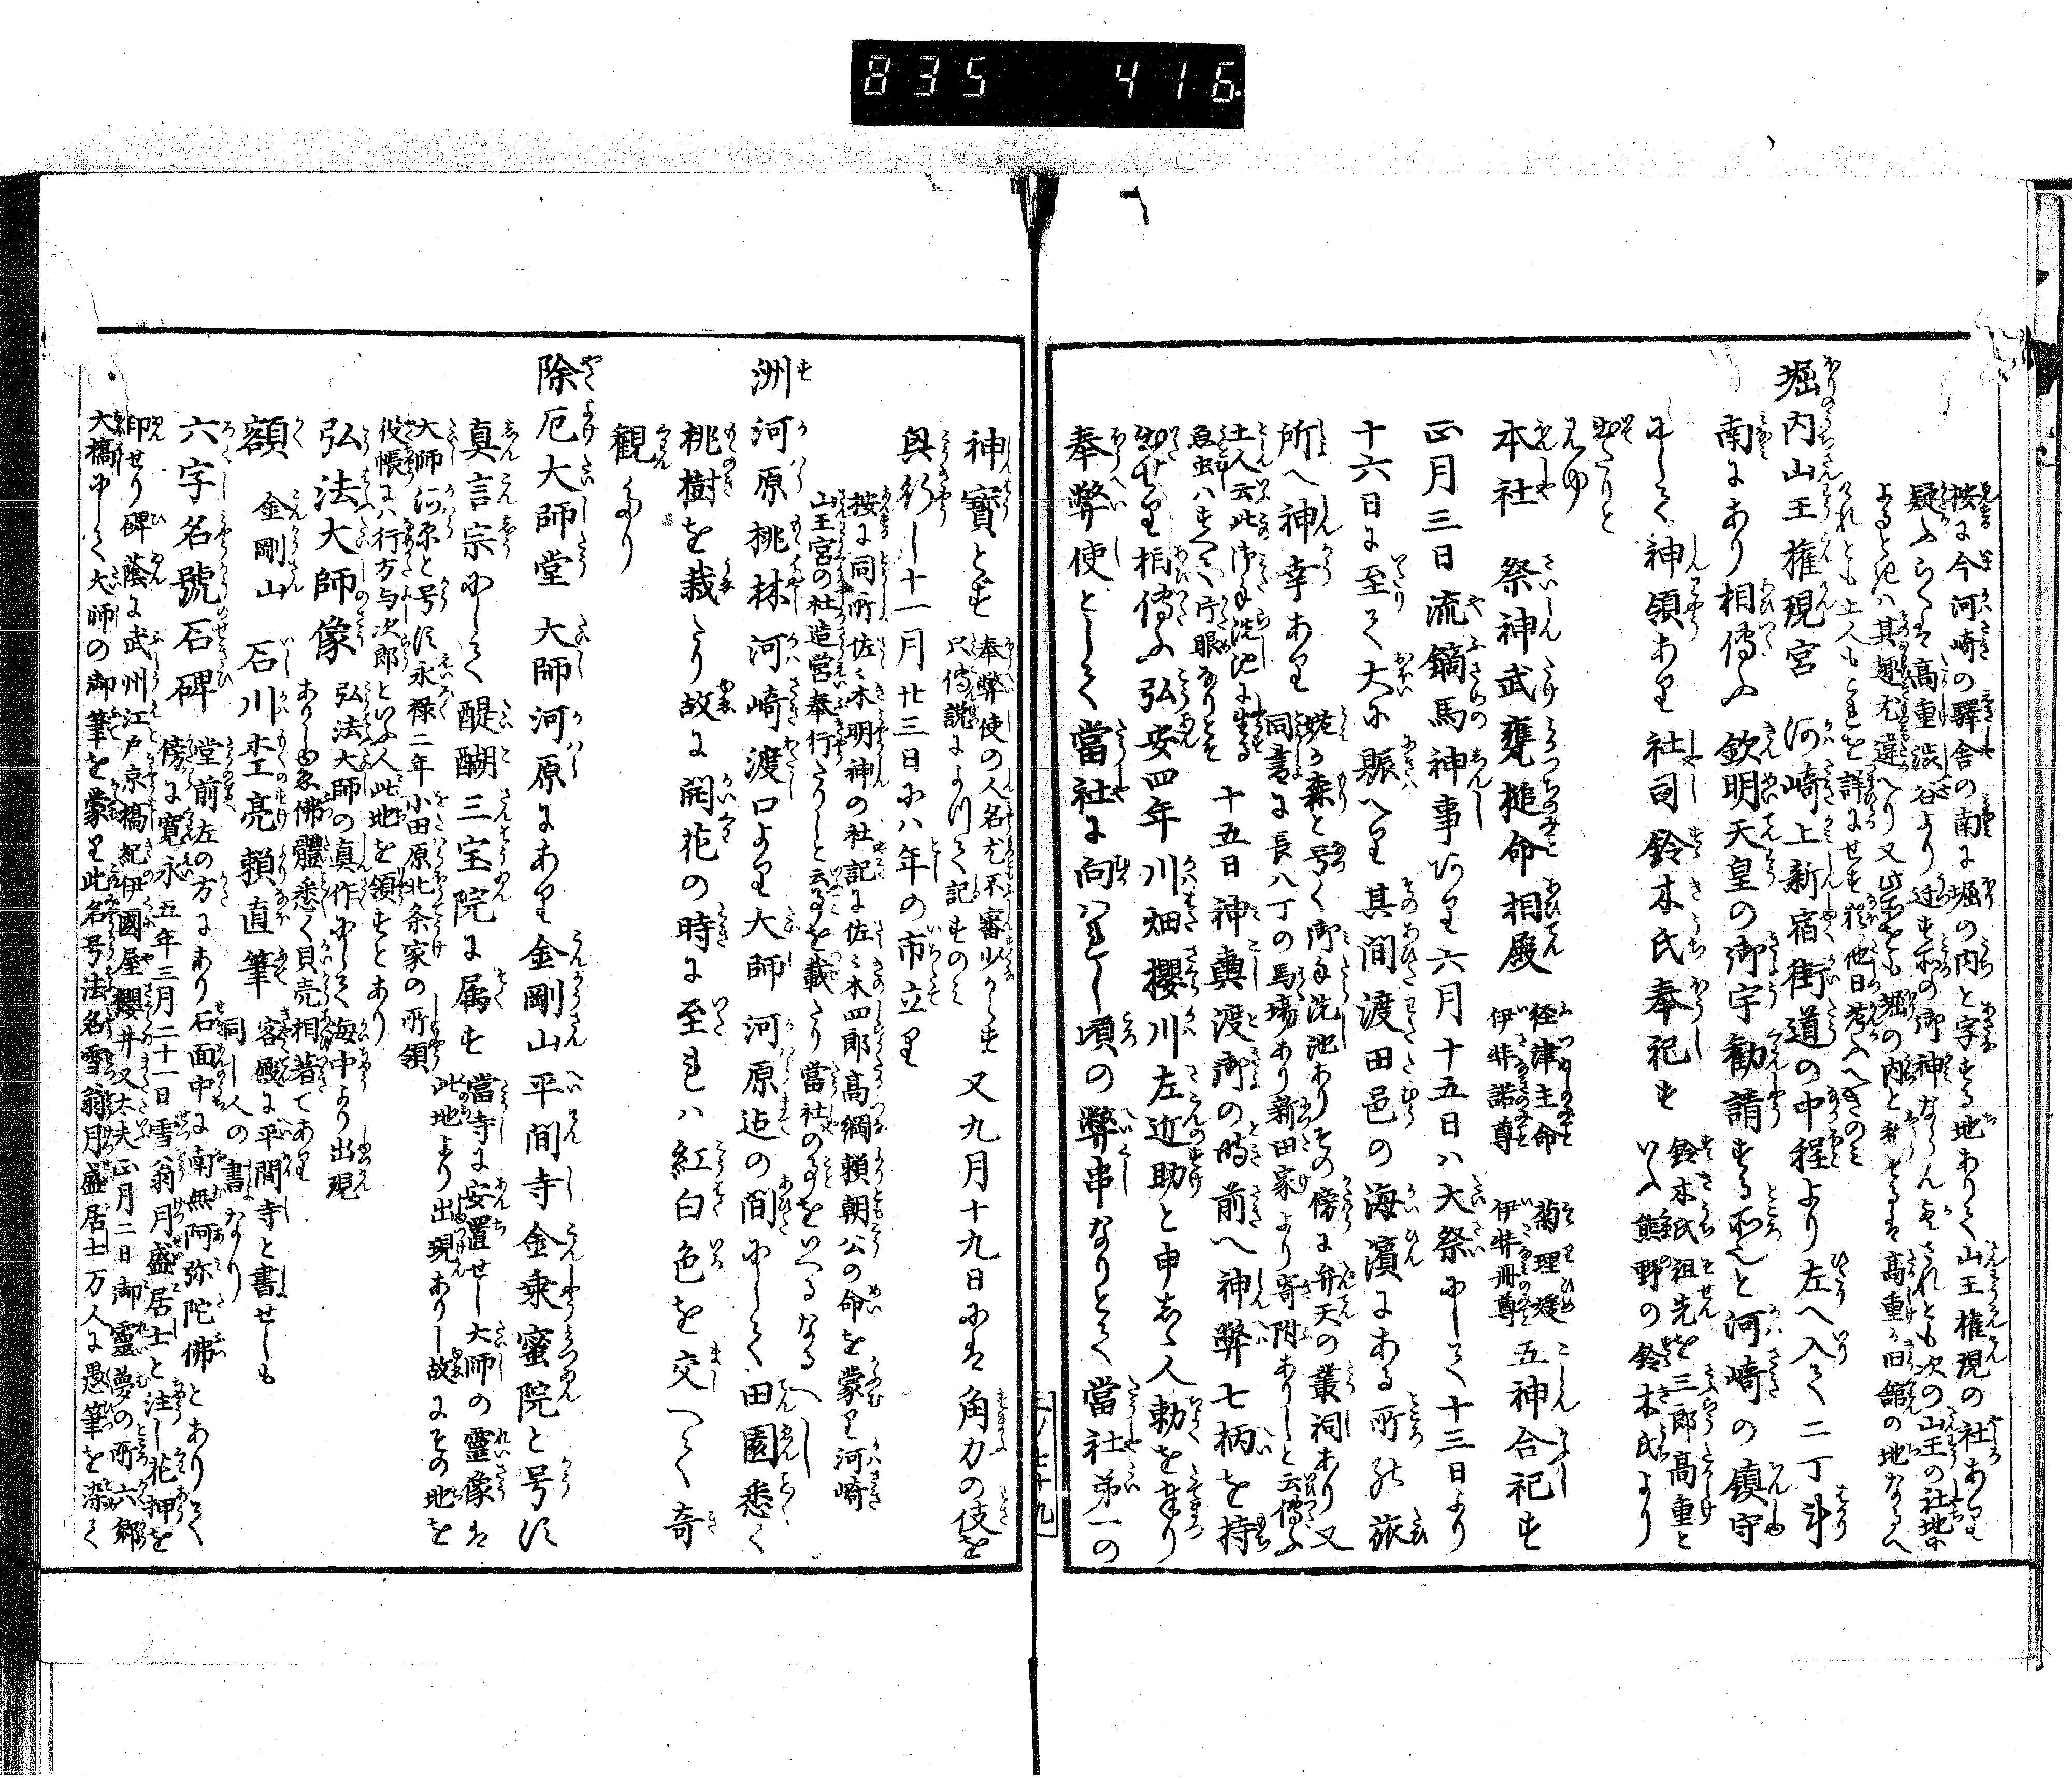 835 416
按に今河崎の驛舎の南に堀の内と字する地ありて山王権現の社あり
疑ふらくは高重渋谷より迁す所の御神ならん歟されとも次の山王の社地に
よるときハ其趣尤違へり又此所をも堀の内と称するは高重か旧舘の地なるへ
けれとも土人もこれを詳にせす猶他日考ふへきのミ
堀内山王権現宮 河崎上新宿街道の中程より左へ入て二丁斗
南にあり相傳ふ欽明天皇の御宇勧請する所と河崎の鎮守
にして神領あり社司鈴木氏奉祀す 鈴木氏祖先を三郎高重と
いふ熊野の鈴木氏より
出たりと
いふ
本社 祭神武甕槌命相殿 経津主命 菊理媛
伊弉諾尊 伊弉冊尊 五神合祀す
正月三日流鏑馬神事あり六月十五日ハ大祭にして十三日より
十六日に至て大に賑へり其間渡田邑の海濱にある所の旅
所へ神幸あり 森と号く御手洗池ありその傍に弁天の叢祠あり又
同書に長八丁の馬場あり新田家より寄附ありしと云傳ふ
土人云此御手洗池に生る
魚虫ハすへて片眼なりとそ 十五日神輿渡御の時前へ神幣七柄を持
相傳ふ弘安四年川畑櫻川左近助と申志人勅を奉り
奉幣使として當社に向はれし頃の幣串なりとて當社第一の
神寳とす 奉幣使の人名尤不審少からす
只傳説によつて記すのミ 又九月十九日にハ角力の伎を
興行し十一月廿三日にハ年の市立り
按に同所佐々木明神の社記に佐々木四郎高綱頼朝公の命を蒙り河崎
山王宮の社造営奉行たりしと云事を載たり當社の事をいへるなるへし
洲河原桃林 河崎渡口より大師河原迠の間にして田園悉く
桃樹を栽たり故に開花の時に至れハ紅白色を交へて奇
観なり
除厄大師堂 大師河原にあり金剛山平間寺金乗蜜院と号す
真言宗にして醍醐三宝院に属す 當寺に安置せし大師の靈像は
此地より出現ありし故にその地を
大師河原と号す永禄二年小田原北条家の所領
役帳にハ行方与次郎といふ人此地を領すとあり
弘法大師像 弘法大師の真作にして海中より出現
ありしゆゑ佛體悉く貝売相著てあり
額 金剛山 石川杢亮頼直筆 客殿に平間寺と書せしも
同し人の書なり
六字名號石碑 堂前左の方にあり石面中に南無阿弥陀佛とありて
傍に寛永五年三月二十一日雪翁月盛居士と注し花押を
印せり碑蔭に武州江戸京橋紀伊國屋櫻井又太夫正月二日御靈夢の所六郷
大橋にて大師の御筆を蒙り此名号法名雪翁月盛居士万人に愚筆を染て